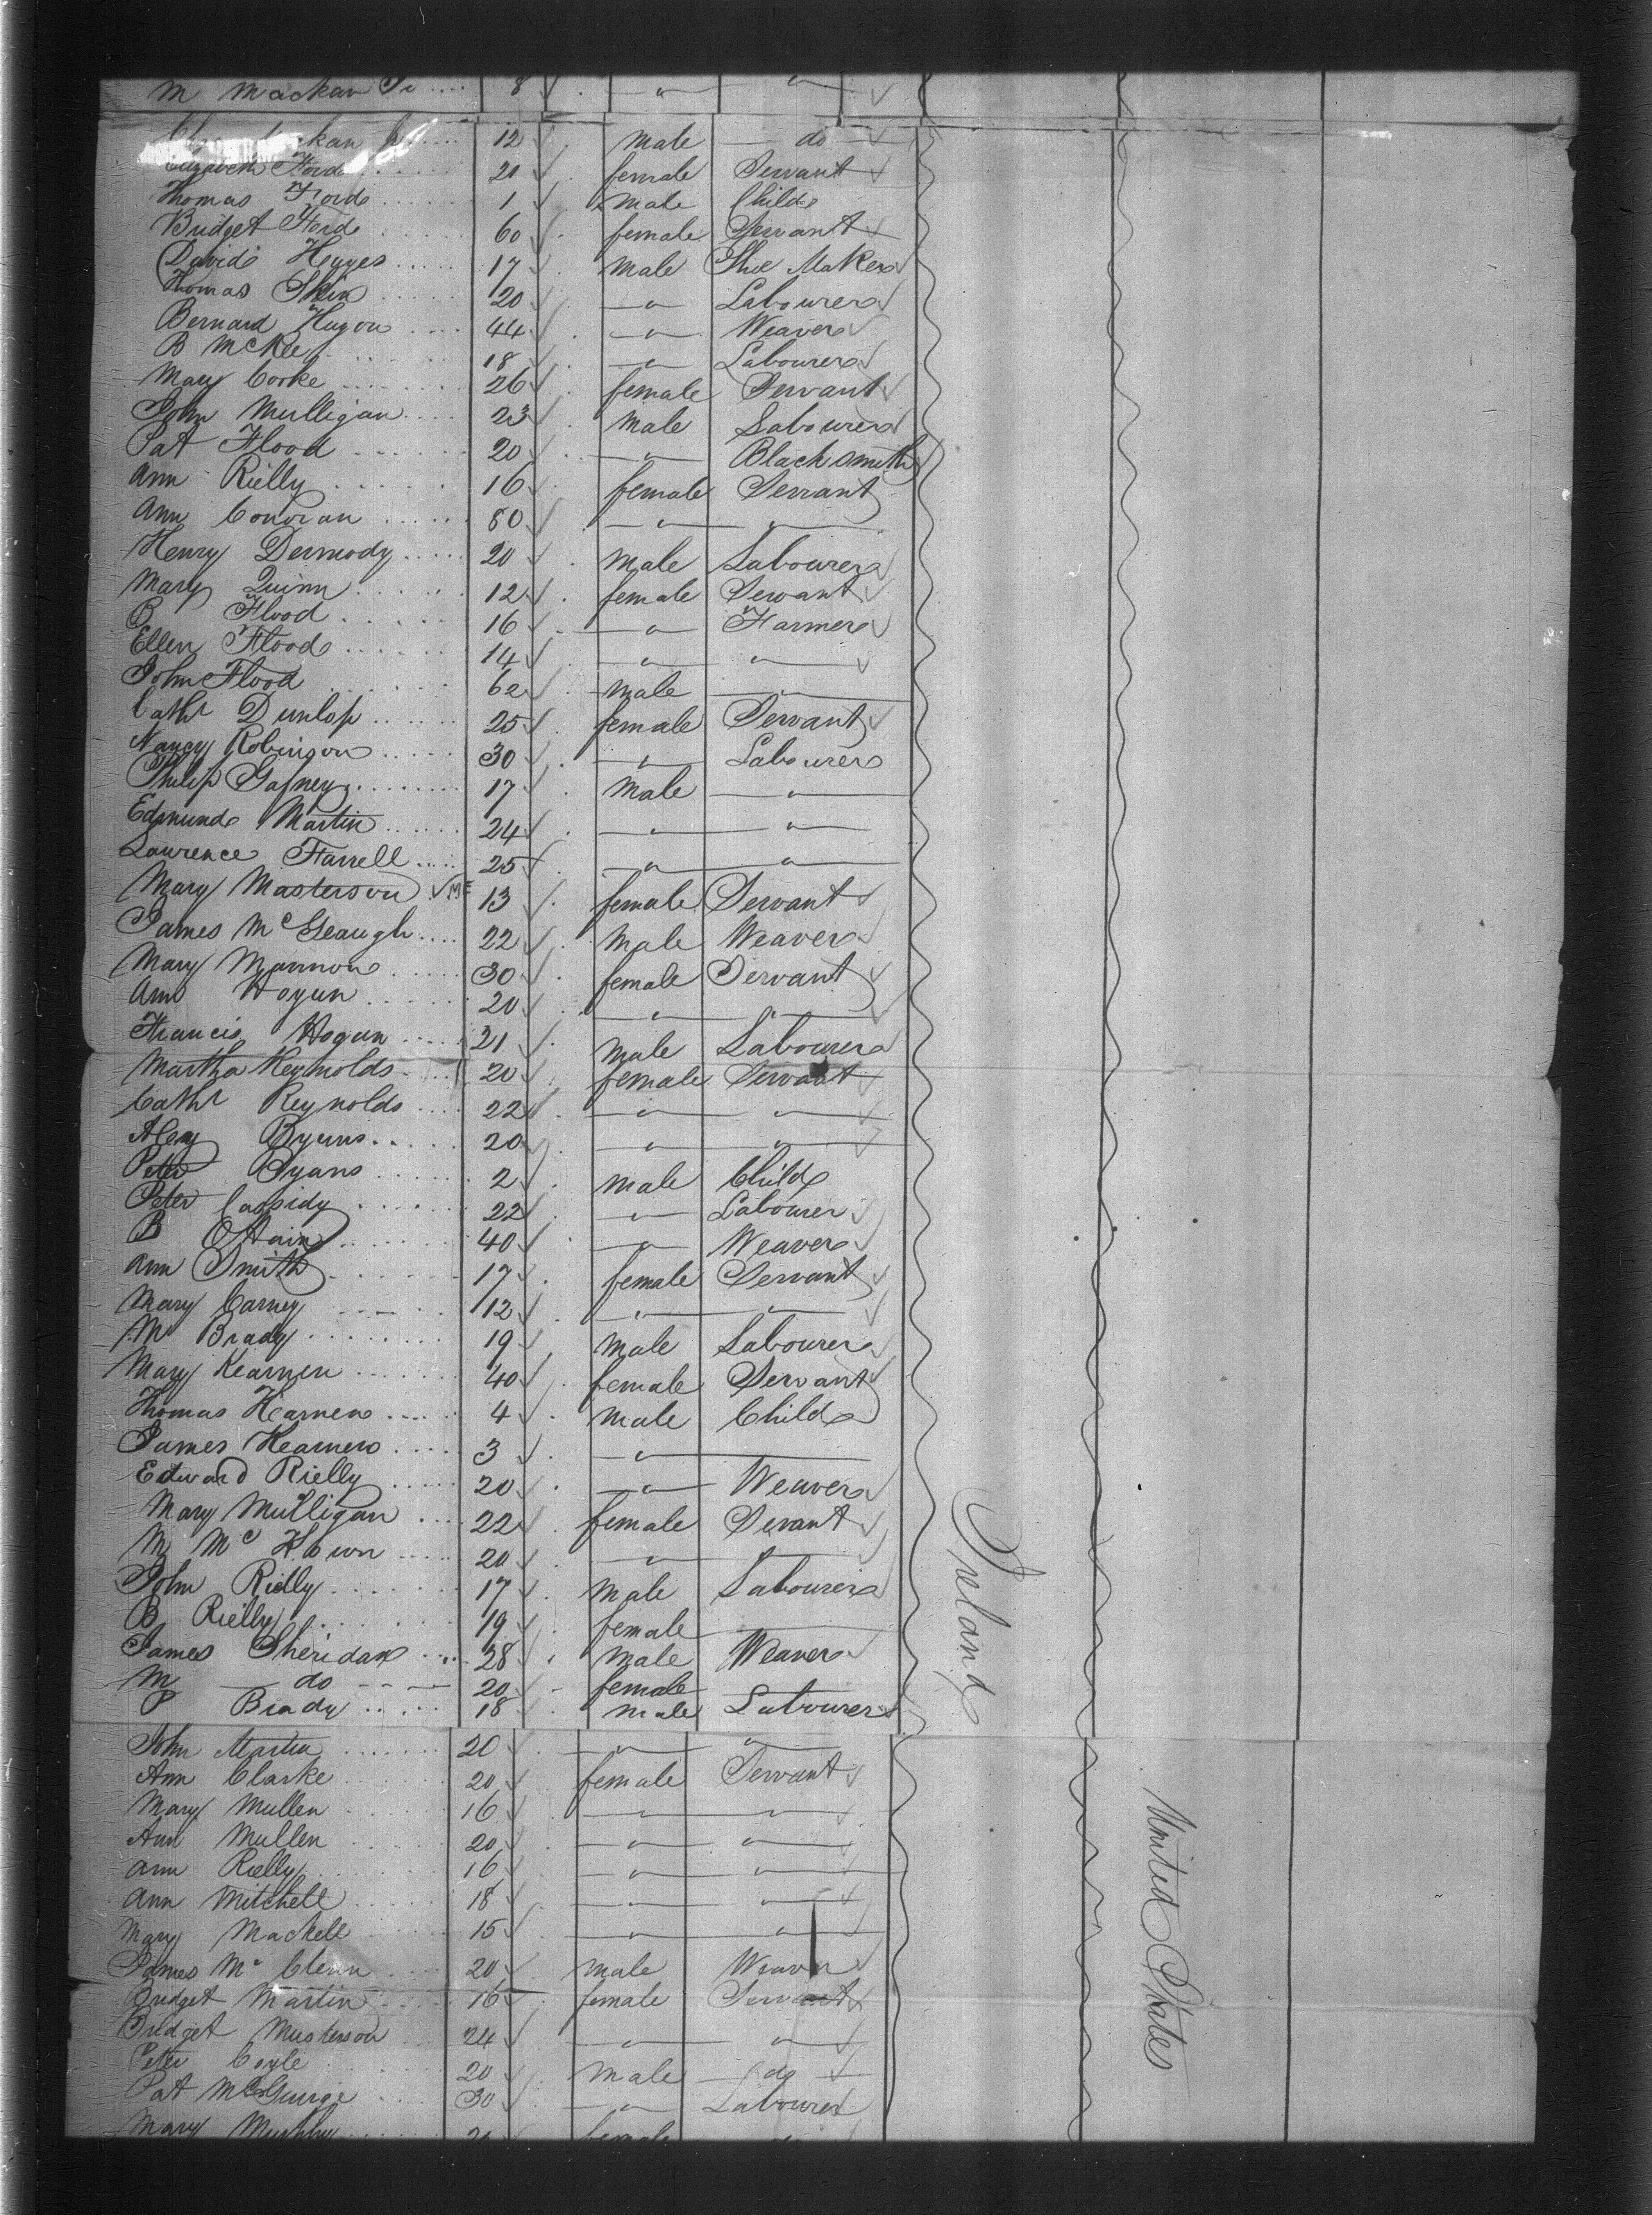 M Mackan Sr .... 8 " "
kan Jr 12 male do
Elizabeth Ford 20 female Servant
Thomas Ford 1 male Child
Bridget Ford 60 female Servant
David Hayes 17 male Shoe Maker
Thomas Shea 20 " Labourer
Bernard Hagon 44 " Weaver
B McKee 18 " Labourer
Mary Corke 26 female Servant
John Mulligan 23 male Labourer
Pat Flood 20 " Blacksmith
Ann Rielly 16 female Servant
Ann Conoran 80 " "
Henry Dermody 20 male Labourer
Mary Quinn 12 female Servant
B Flood 16 " Farmer
Ellen Flood 14 " "
John Flood 62 male "
Cathr Dunlop 25 female Servant
Nancy Robinson 30 " Labourer
Philip Gafney 17 male "
Edmund Martin 24 " "
Laurence Farrell 25 " "
Mary Masterson 13 female Servant
James McGeaugh 22 male Weaver
Mary Mannon 30 female Servant
Ann Hogan 20 " "
Francis Hogan 21 male Labourer
Martha Reynolds 20 female Servant
Cathr Reynolds 22 " "
Byrns 20 " "
Peter Byans 2 male Child
Peter Cassidy 22 " Labourer
B 40 " Weaver
Ann Smith 17 female Servant
Mary Carney 12 " "
M Brady 19 male Labourer
Mary Kearnen 40 female Servant
Thomas Kearnen 4 male Child
James Kearnen 3 "
Edward Rielly 20 " Weaver
Mary Mulligan 22 female Sevant
M McKown 20 " "
John Rielly 17 male Labourer
B Rielly 19 female
James Sheridan 28 male Weaver
M do 20 female
P Brady 18 male Labourer
John Martin 20 " "
Ann Clarke 20 female Servant
Mary Mullen 16 " "
Ann Mullen 20 " "
Ann Rielly 16 " "
Ann Mitchell 18 " "
Mary Mackell 15 " "
James Mc Clenn 20 male Weaver
Bridget Martin 16 female Servant
Bridget Masterson 24 " "
Peter Coyle 20 male do
Pat 30 " Labourer
Mary Murphy female
Ireland
United States